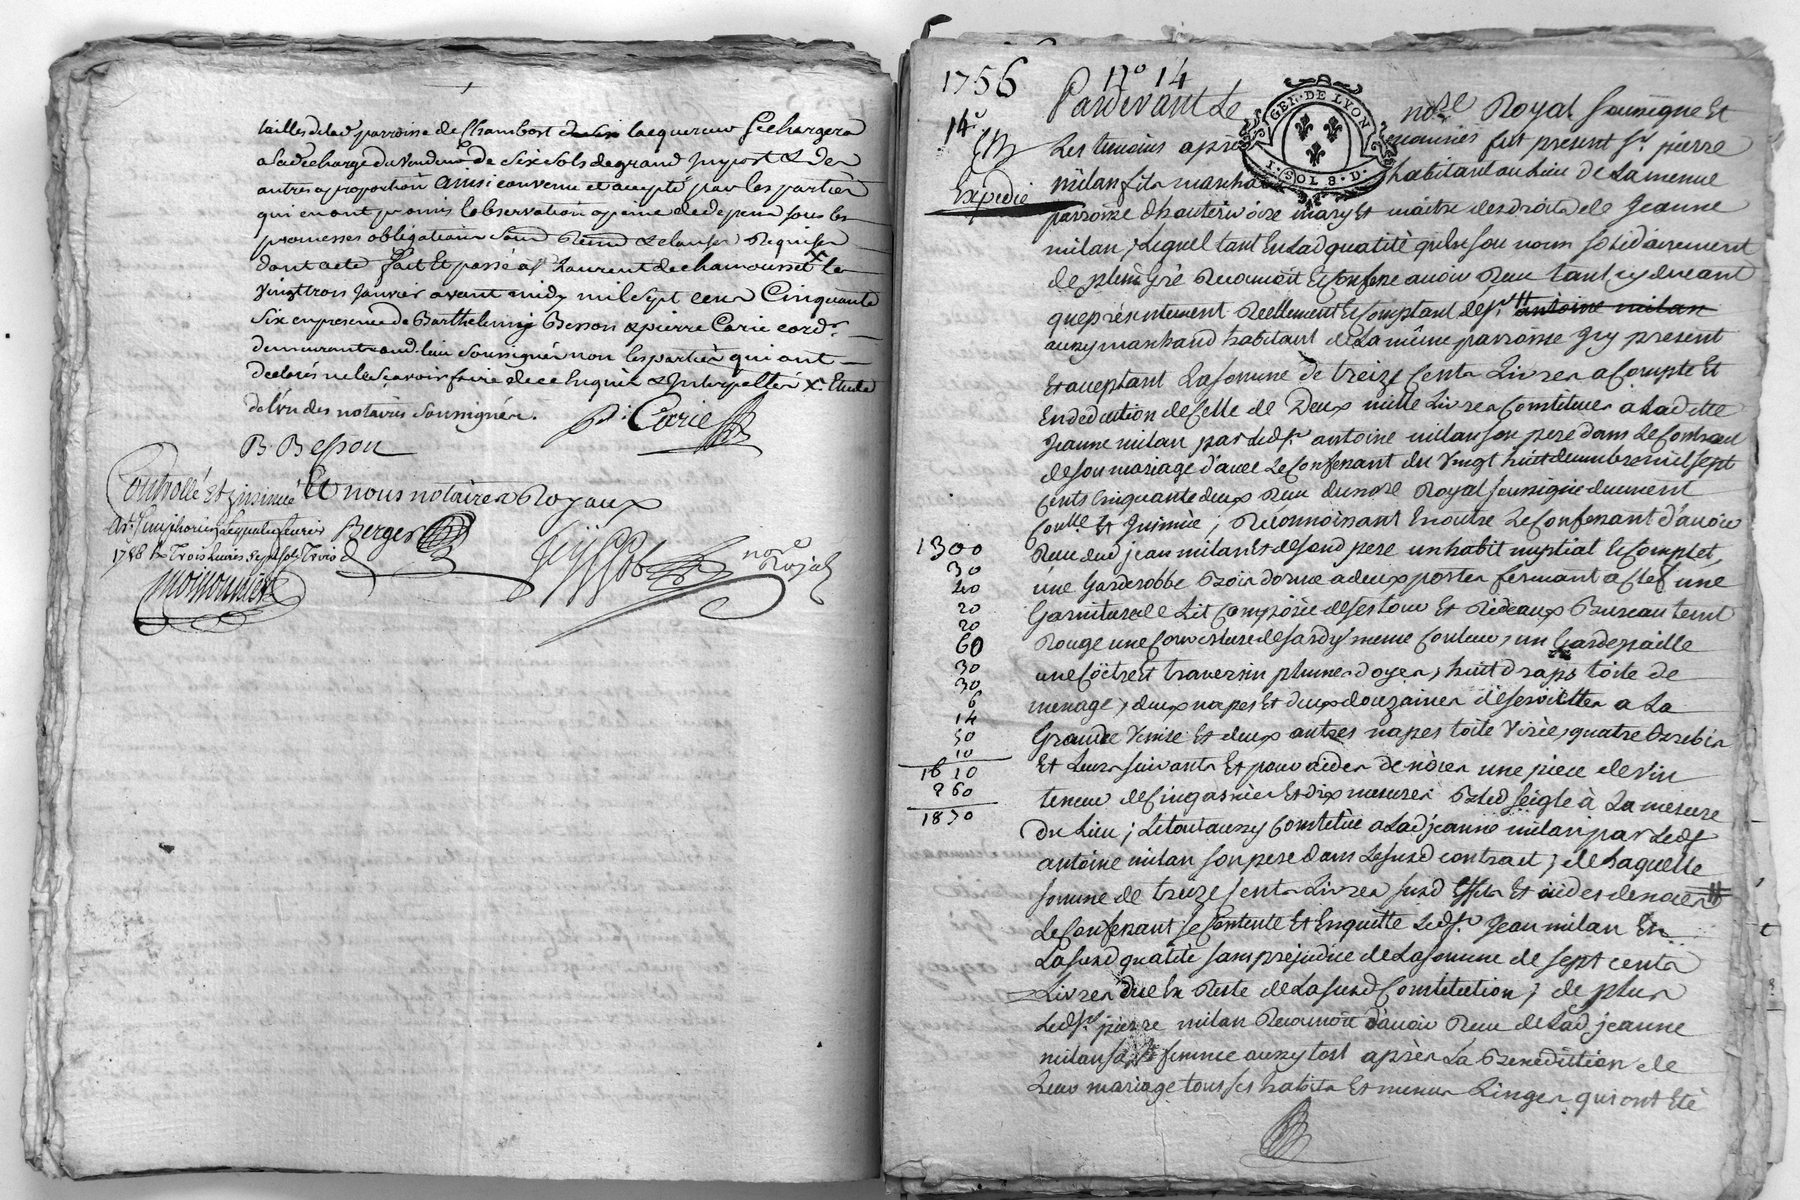 tailles de lad parroisse de Chambost lacquereur se chargera
a la decharge du vendeur de six sols de grand impost & des
autres a proportion ainsi convenu et accepté par les parties
qui en ont promis l'observation a peine de depens sous les
promesses obligations soum Renon & clauses Requises
dont acte fait Et passé a St Laurent de chamousset X le
vingt trois Janvier avant midy mil sept cens Cinquante
six en presence de Barthelemy Besson & pierre Carie cord.r
demeurants aud. lieu soussignés non les parties qui ont
declarés ne le sçavoir faire de ce Enquis & Interpellés X Etude
de l'vn des notaires soussignés.
B Besson
P. Carie
Controllé Et insinué Et nous notaires Royaux
A St Simphorien
Berger
1756 Rx Trois livres sept sols Trois d
nore Royal
moissonnier
1756
No 14
14e
Expedié
Pardevant Le nore Royal soussigné Et
Les temoins après nommés fut present Sr. pierre
milan fils marchand habitant au lieu de La menue
parroisse d'hauterivoire mary Et maitre des droits de Jeanne
milan, Lequel tant En Lad qualité qu'En son nom solidairement
de plein Gré Reconnoit Et Confesse avoir Reçu tant cy devant
que présentement Reellement Et Comptant de Sr. antoine milan
aussy marchand habitant de La même parroisse Icy present
Et acceptant La somme de treize Cents Livres a Compte Et
En deduction de Celle de Deux mille Livres Constituée a Laditte
Jeanne milan par Led Sr. antoine milan son pere dans Le Contract
de son mariage d'avec Le Confessant du vingt huit decembre mil sept
Cents Cinquante deux Reçu du nore Royal soussigné duement
Conlle Et Insinué, Reconnoissant En outre Le Confessant d'avoir
Reçu dud jean milan Et de son d pere un habit nuptial Et Complet,
une Garderobbe Bois dorme a deux portes fermant a clef une
Garniture de Lit Composée de ses tour Et Rideaux Bureau teint
Rouge une Couverture de Sardy meme Couleur, un Gardepaille
une Coëtre Et traversin plumes d'oyes, huit draps toile de
menage, deux napes Et deux douzaines de serviettes a La
Grande Venise Et deux autres napes toile Virée, quatre Brebis
Et Leurs suivants Et pour aides de nôces une piece de vin
teneur de Cinq asnées Et dix mesures Bled seigle à La mesure
du Lieu; Le tout aussy Constitué a Lad jeanne milan par Led Sr
antoine milan son pere dans Le susd contract; de Laquelle
somme de treize Cents Livres susd Effets Et aides de nôces
Le Confessant se Contente Et En quitte Led Sr. Jean milan En
La susd qualité sans prejudice de La somme de sept cents
Livres due En Reste de La susd Constitution; de plus
Led Sr. pierre milan Reconnoit d'avoir Reçu de Lad jeanne
milan sa femme aussy tost après La Benediction de
Leur mariage tous ses habits Et menus Linges qui ont Eté
1300
30
40
20
20
60
30
30
6
14
50
10
1610
260
1870
GEN. DE LYON
1. SOL 8. D.